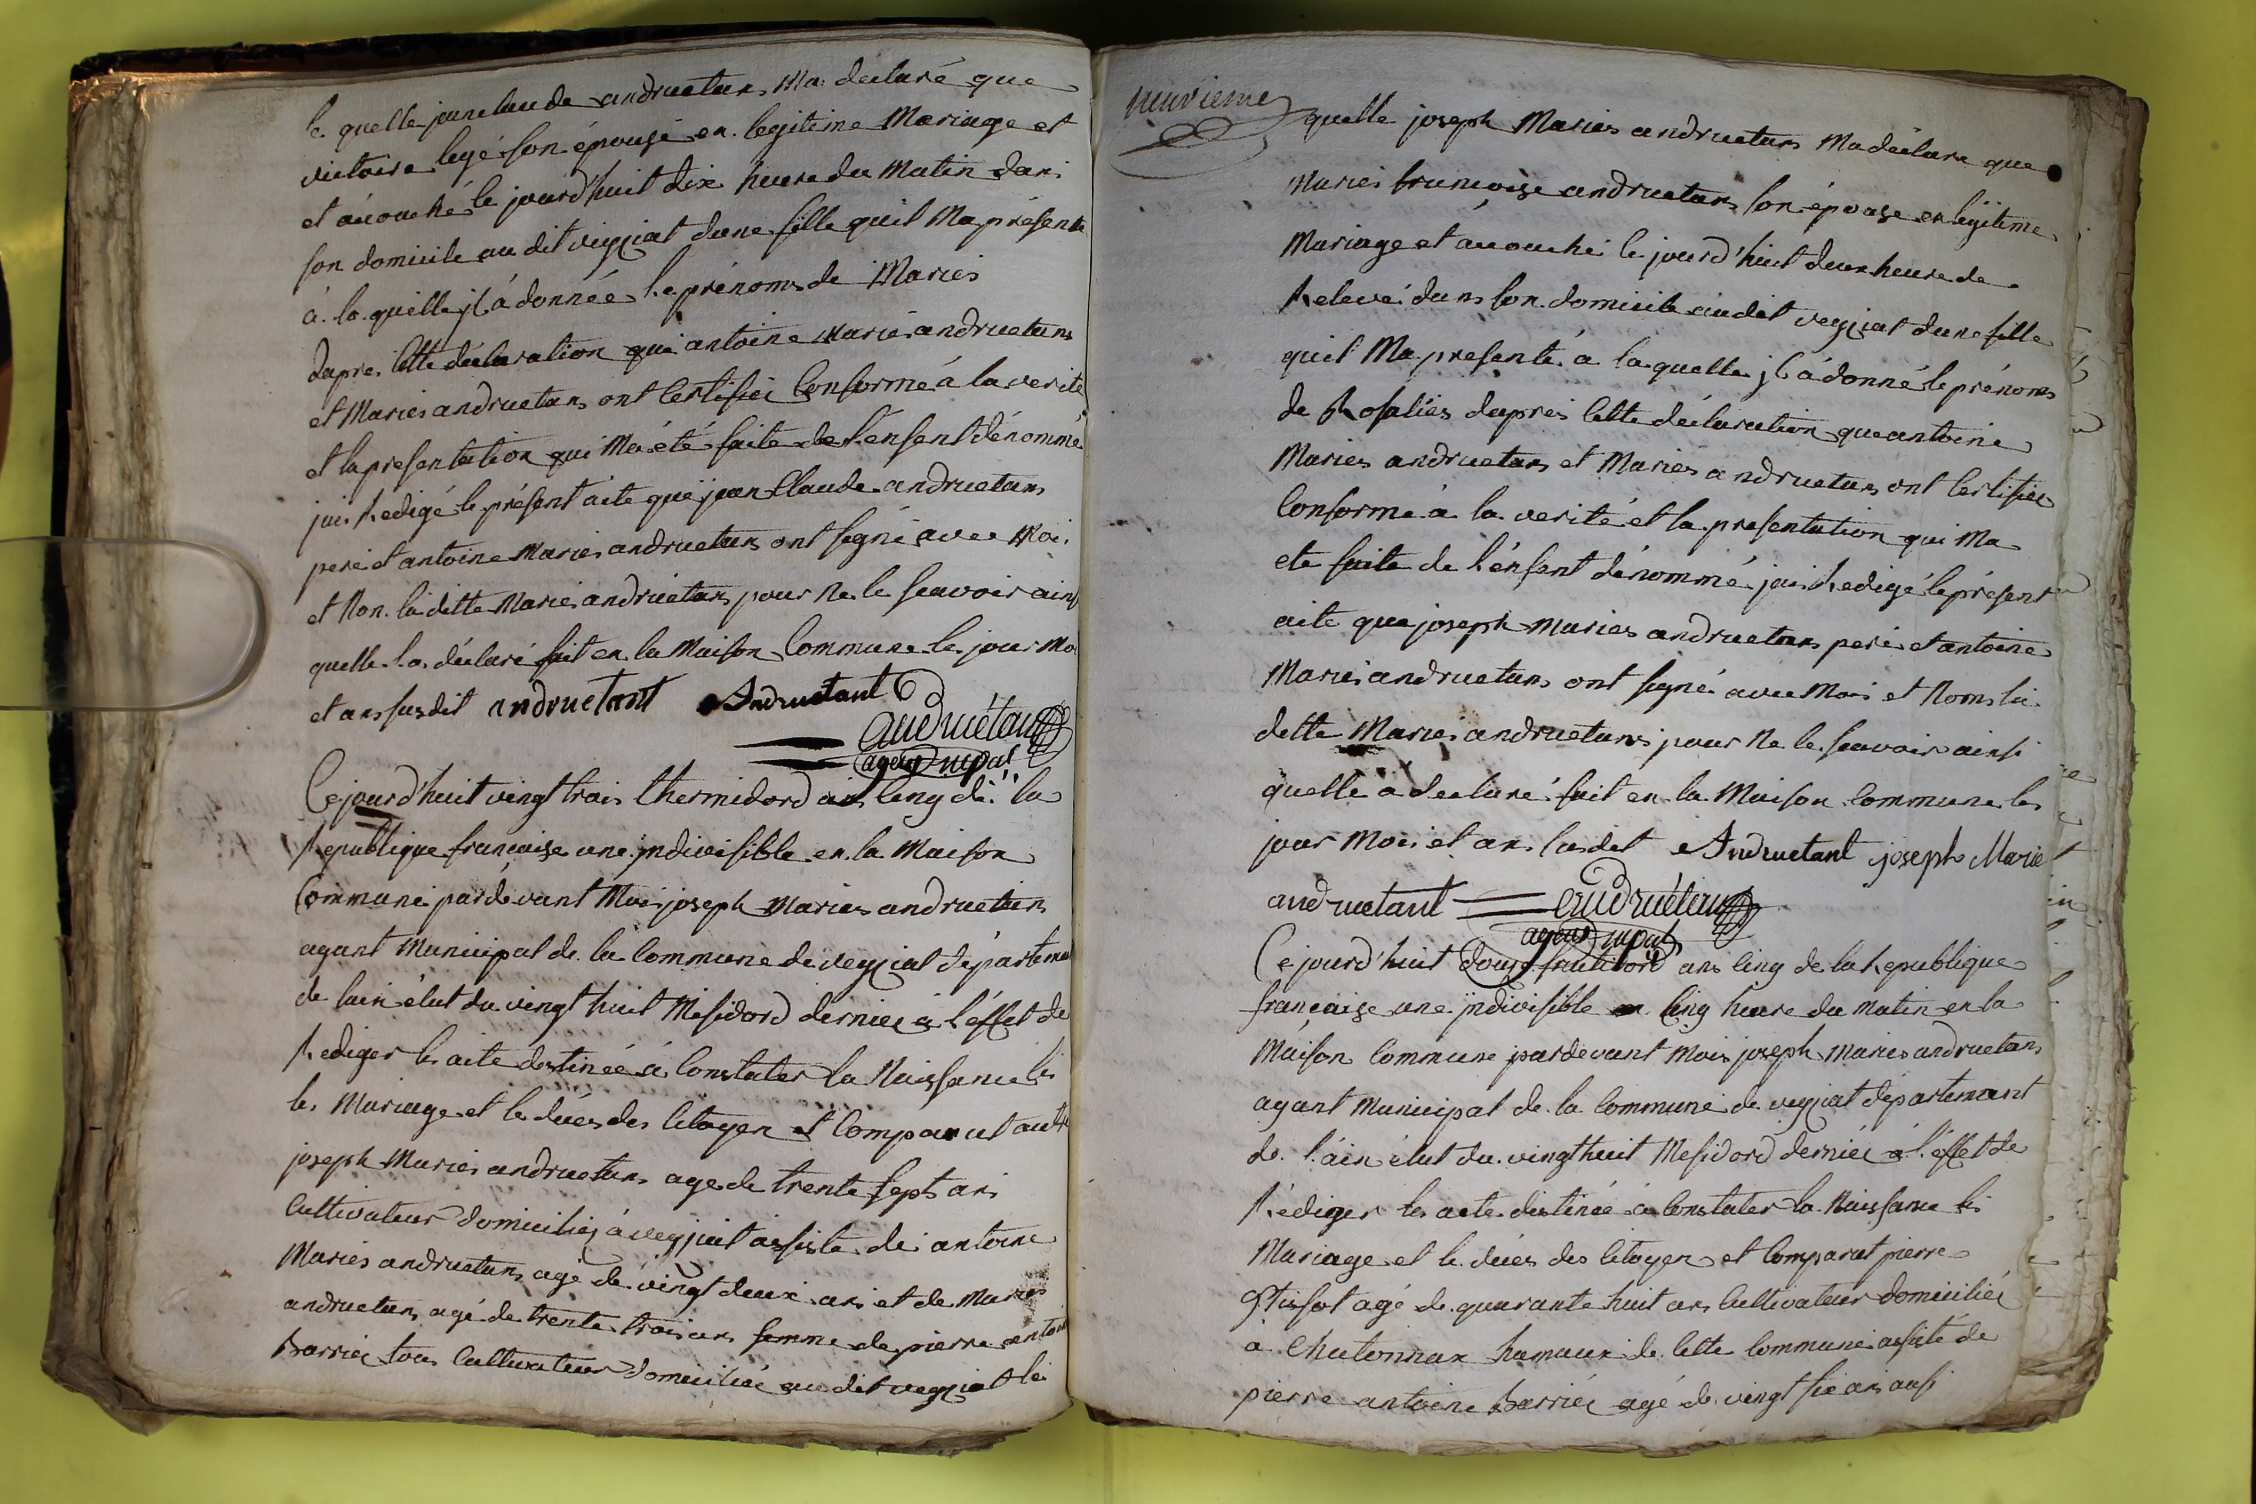 le quelle jean claude andruetans Ma déclaré que
victoire legé son épouse en legitime Mariage et
et acouché le jourd'huit dix heure du Matin dans
son domicile au dit veyziat dune fille quil Ma présenté
à la quelle jl à donnée le prénoms de Maries
dapres cette déclaration que antoine Maries andruetans
et Maries andruetans ont certifiei Conforme à la verité
et la presentation qui Ma été faite de l'enfent dénommé
jai Redigé le présent acte que jean Claude andruetans
pere et antoine Maries andruetans ont signé avec Moi
et Non la ditte Maries andruetans pour Ne le scavoir ainsi
quelle la déclaré fait en la Maison Commune le jour Moi
et ans susdit andruetant Andruetant
andruétan
agent mpal
Cejourd'huit vingt trois thermidord ans cinq de la
Republique française une jndivisible en la Maison
Commune pardevant Moi joseph Maries andruetans
agant Municipal de la Commune de veyziat départemen
de lain élut du vingt huit Mesidord derniei à l'éffet de
Rediger les acte destinée à Constater la Naissance les
les Mariage et le dices des Citoyen et Comparut autre
joseph Maries andruetans age de trente sept ans
Cultivateur domiciliéz à veyziat assiste de antoine
Maries andruetans agé de vingt deux ans et de Maries
andruetans agé de trente trois ans femme de pierre antoine
Barriei tous Cultivateur domiciliéé au dit veyziat le
neuvieme
quelle joseph Maries andruetans Ma déclare que
Maries francoise andruetans son épouse en legitime
Mariage et acouchéi le jourd'huit deux heure de
Relevé dans son domicile audit veyziat dune fille
quil Ma presenté à la quelle jl à donné le prénoms
de Rosaliés dapres cette déclaration que antoine
Maries andruetans et Maries andruetans ont certifiée
Conforme à la verité et la presentation qui Ma
ete faite de l'énfent dénommé jai Redigé le présent
acte que joseph Maries andruetans pere et antoine
Maries andruetans ont signé avec Moi et Nons la
dette Maries andruetans pour Ne le scavoir ainsi
quelle à declaré fait en la Maison Commune les
jour Moi et ans susdit Andruetant joseph Marie
andruetant andruétan
agent mpal
Ce jourd'huit douze fructidord ans cinq de la Republique
française une jndivisible en cinq heure du Matin en la
Maison Commune pardevant Mois joseph Maries andruetans
agant Municipal de la Commune de veyziat départemant
de l'ain élut du vingt huit Mesidord derniei à l'éffet de
Rédiger les acte distinée à Constater la Naissance les
Mariage et le dices des Citoyen et Comparut pierre
agé de quarante huit ans Cultivateur domiciliéé
à Chatonnax hamaux de cette Commune assité de
pierre antoine Barriéi agé de vingt six ans ausi